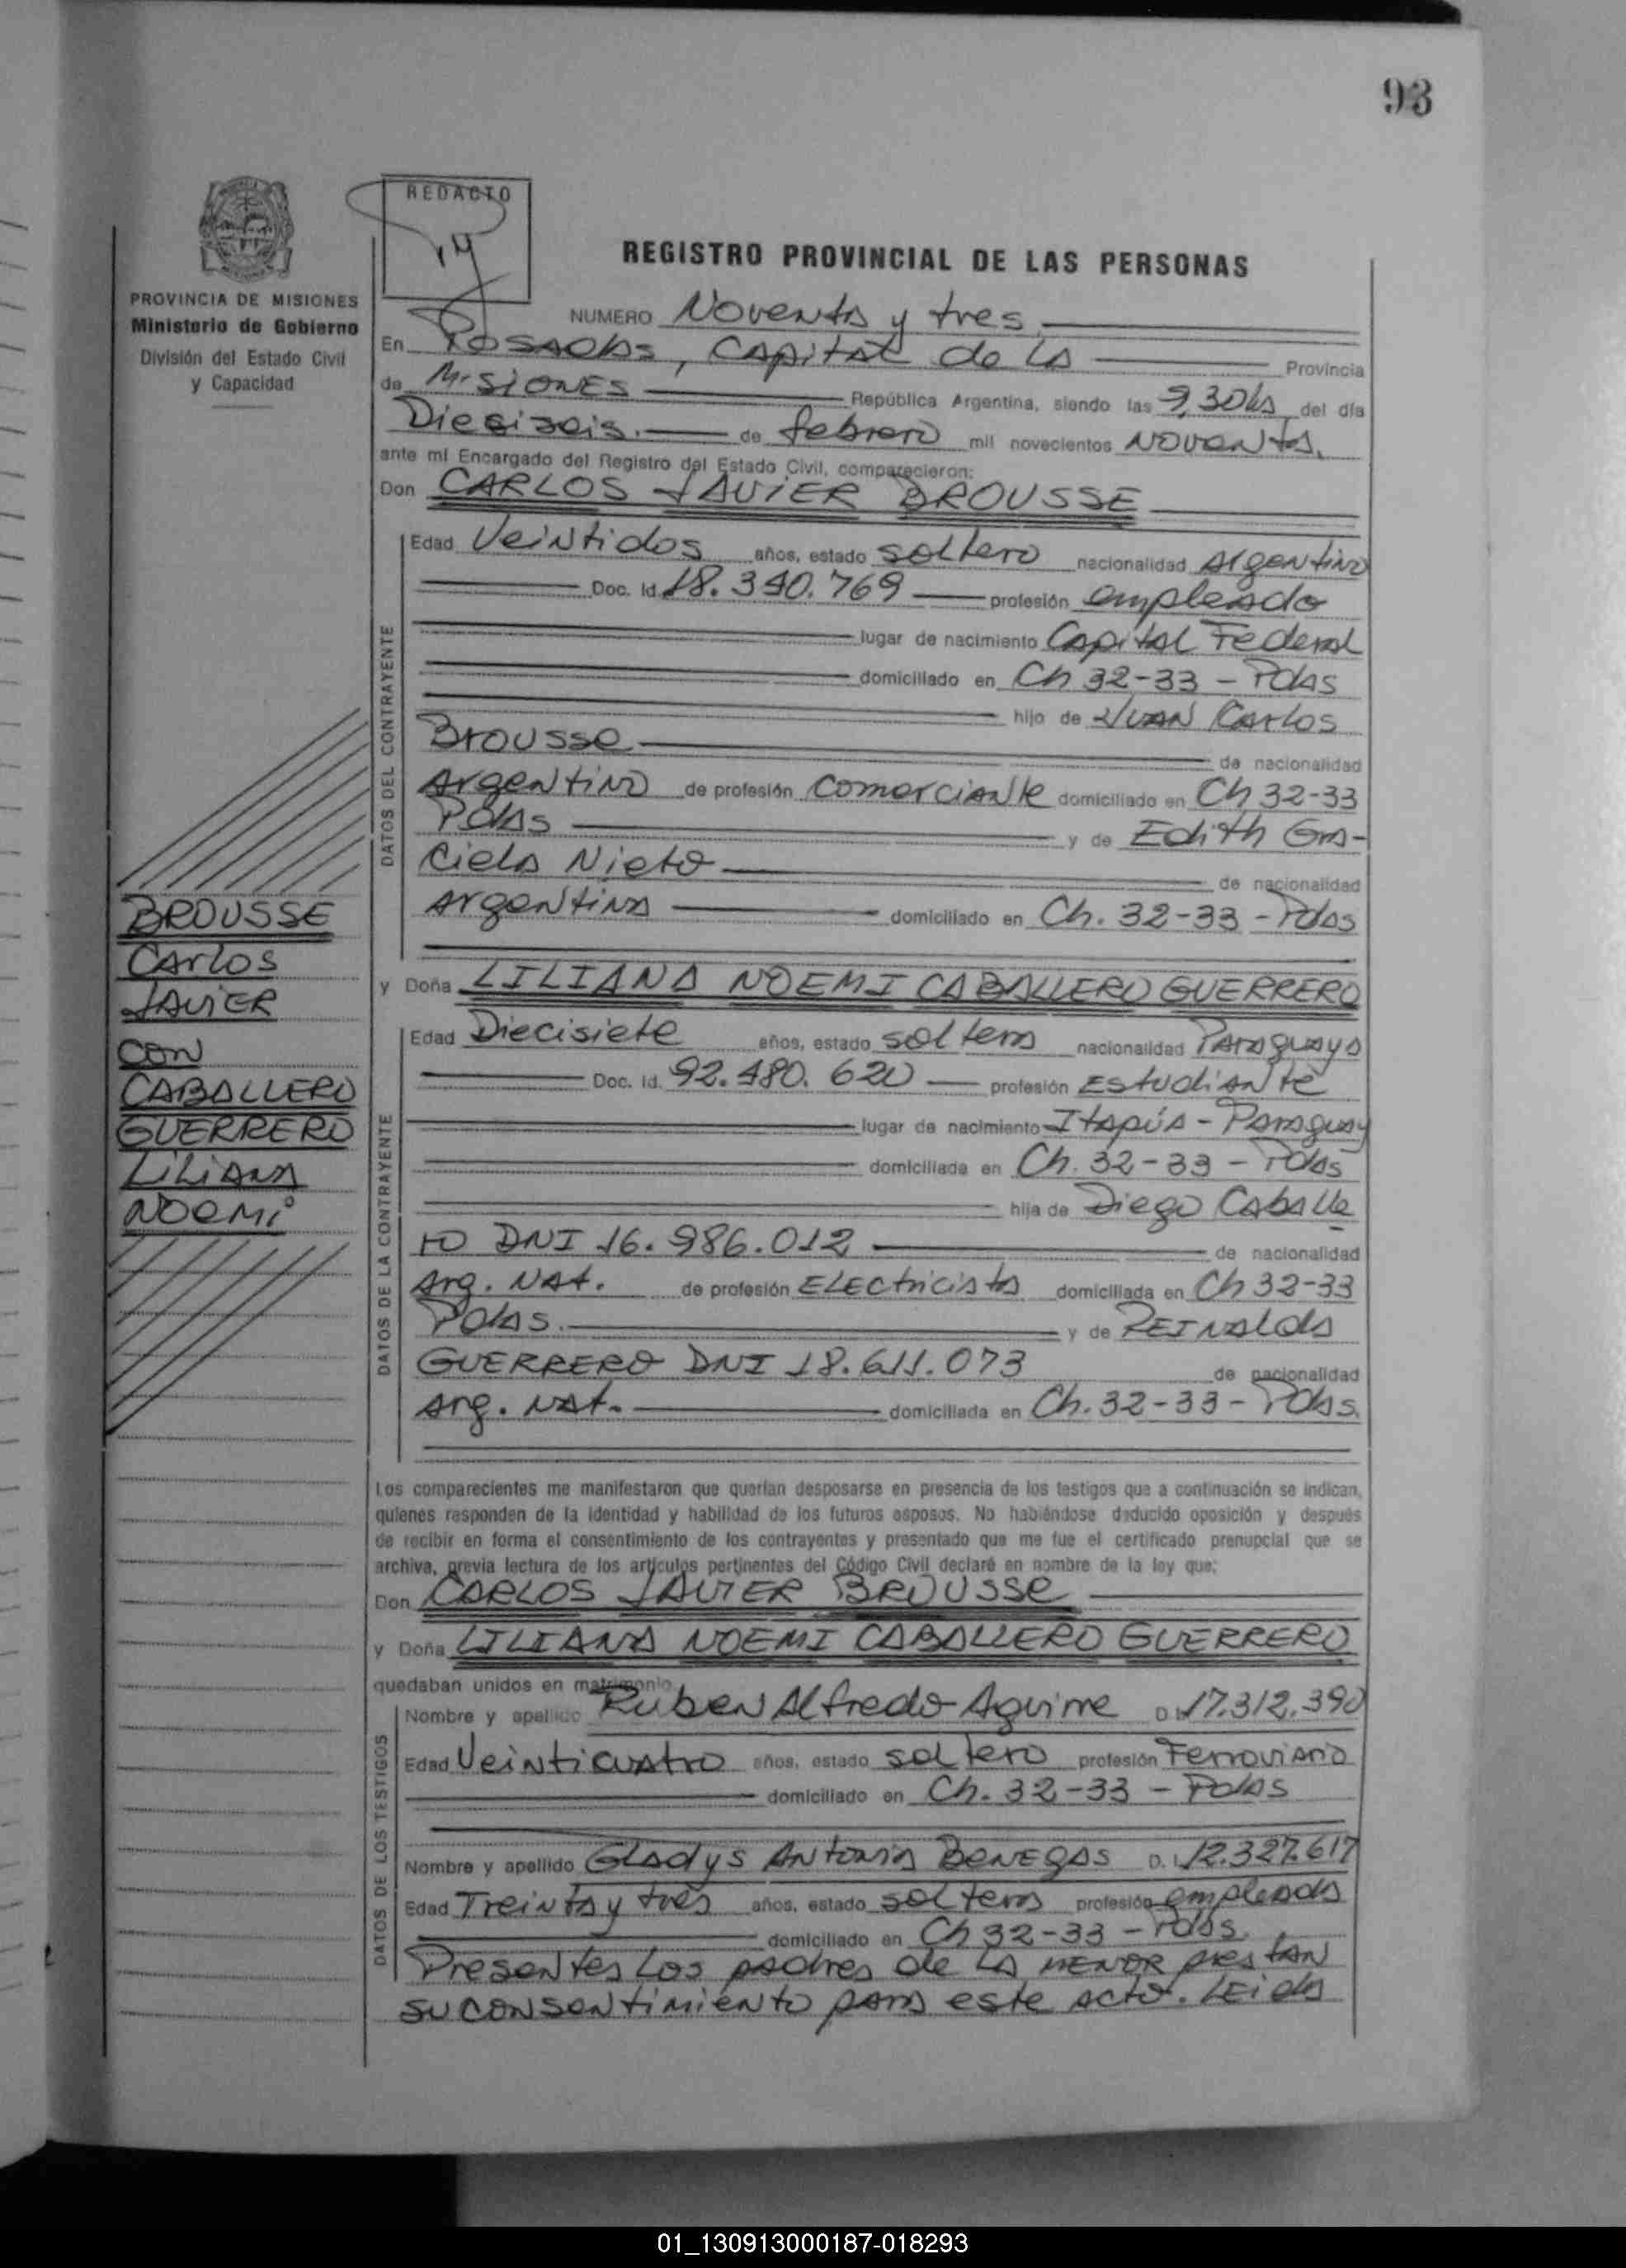 93
REDACTO
14
PROVINCIA DE MISIONES
Ministerio de Gobierno
División del Estado Civil
y Capacidad
REGISTRO PROVINCIAL DE LAS PERSONAS
NUMERO Noventa y tres
En Posadas, Capital de la Provincia
de Misiones República Argentina, siendo las 9,30hs del día
Diesiseis. de febrero mil novecientos NOVENTA.
ante mí Encargado del Registro del Estado Civil, comparecieron:
Don CARLOS JAVIER BROUSSE
DATOS DEL CONTRAYENTE
Edad Veintidos años, estado soltero nacionalidad Argentino
Doc. Id. 18.340.769 profesión empleado
lugar de nacimiento Capital Federal
domiciliado en Ch 32-33 - Pdas
hijo de Juan Carlos
Brousse de nacionalidad
Argentino de profesión Comerciante domiciliado en Ch 32-33
Pdas y de Edith Gra-
ciela Nieto de nacionalidad
Argentina domiciliado en Ch. 32-33 - Pdas
BROUSSE
Carlos
JAVIER
CON
CABALLERO
GUERRERO
LILIANA
NOEMi
y Doña LILIANA NOEMI CABALLERO GUERRERO
DATOS DE LA CONTRAYENTE
Edad Diecisiete años, estado soltera nacionalidad Paraguaya
Doc. Id. 92.480.620 profesión Estudiante
lugar de nacimiento Itapúa - Paraguay
domiciliada en Ch. 32-33 - Pdas
hija de Diego Caballe
ro DNI 16.986.012 de nacionalidad
Arg. Nat. de profesión Electricista domiciliada en Ch 32-33
Pdas. y de REINALDA
GUERRERO DNI 18.611.073 de nacionalidad
Arg. Nat. domiciliada en Ch. 32-33 - Pdas.
Los comparecientes me manifestaron que querían desposarse en presencia de los testigos que a continuación se indican,
quienes responden de la identidad y habilidad de los futuros esposos. No habiéndose deducido oposición y después
de recibir en forma el consentimiento de los contrayentes y presentado que me fue el certificado prenupcial que se
archiva, previa lectura de los artículos pertinentes del Código Civil declaré en nombre de la ley que:
Don CARLOS JAVIER BROUSSE
y Doña LILIANA NOEMI CABALLERO GUERRERO
quedaban unidos en matrimonio
DATOS DE LOS TESTIGOS
Nombre y apellido Ruben Alfredo Aguirre D. I. 17.312.390
Edad Veinticuatro años, estado soltero profesión Ferroviario
domiciliado en Ch. 32-33 - Pdas
Nombre y apellido Gladys Antonia Benegas D. I. 12.327.617
Edad Treinta y tres años, estado soltera profesión empleada
domiciliado en Ch 32-33 - Pdas.
Presentes los padres de la MENOR prestan
su consentimiento para este acto. Leida
01_130913000187-018293